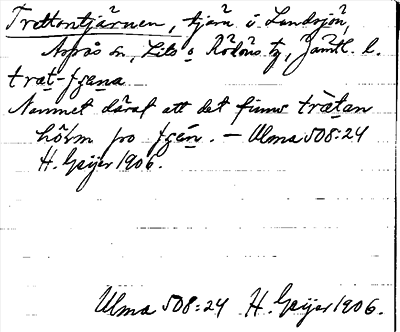 Trettontjärnen, tjärn i Landsjön,
Aspås sn, Lits o Rödöns tg, Jämtl. l.
træt-tjæna
Namnet däraf att det finns trætan
hólm po tjǽn. – Ulma 508:24
H. Geijer 1906.
Ulma 508:24 H. Geijer 1906.